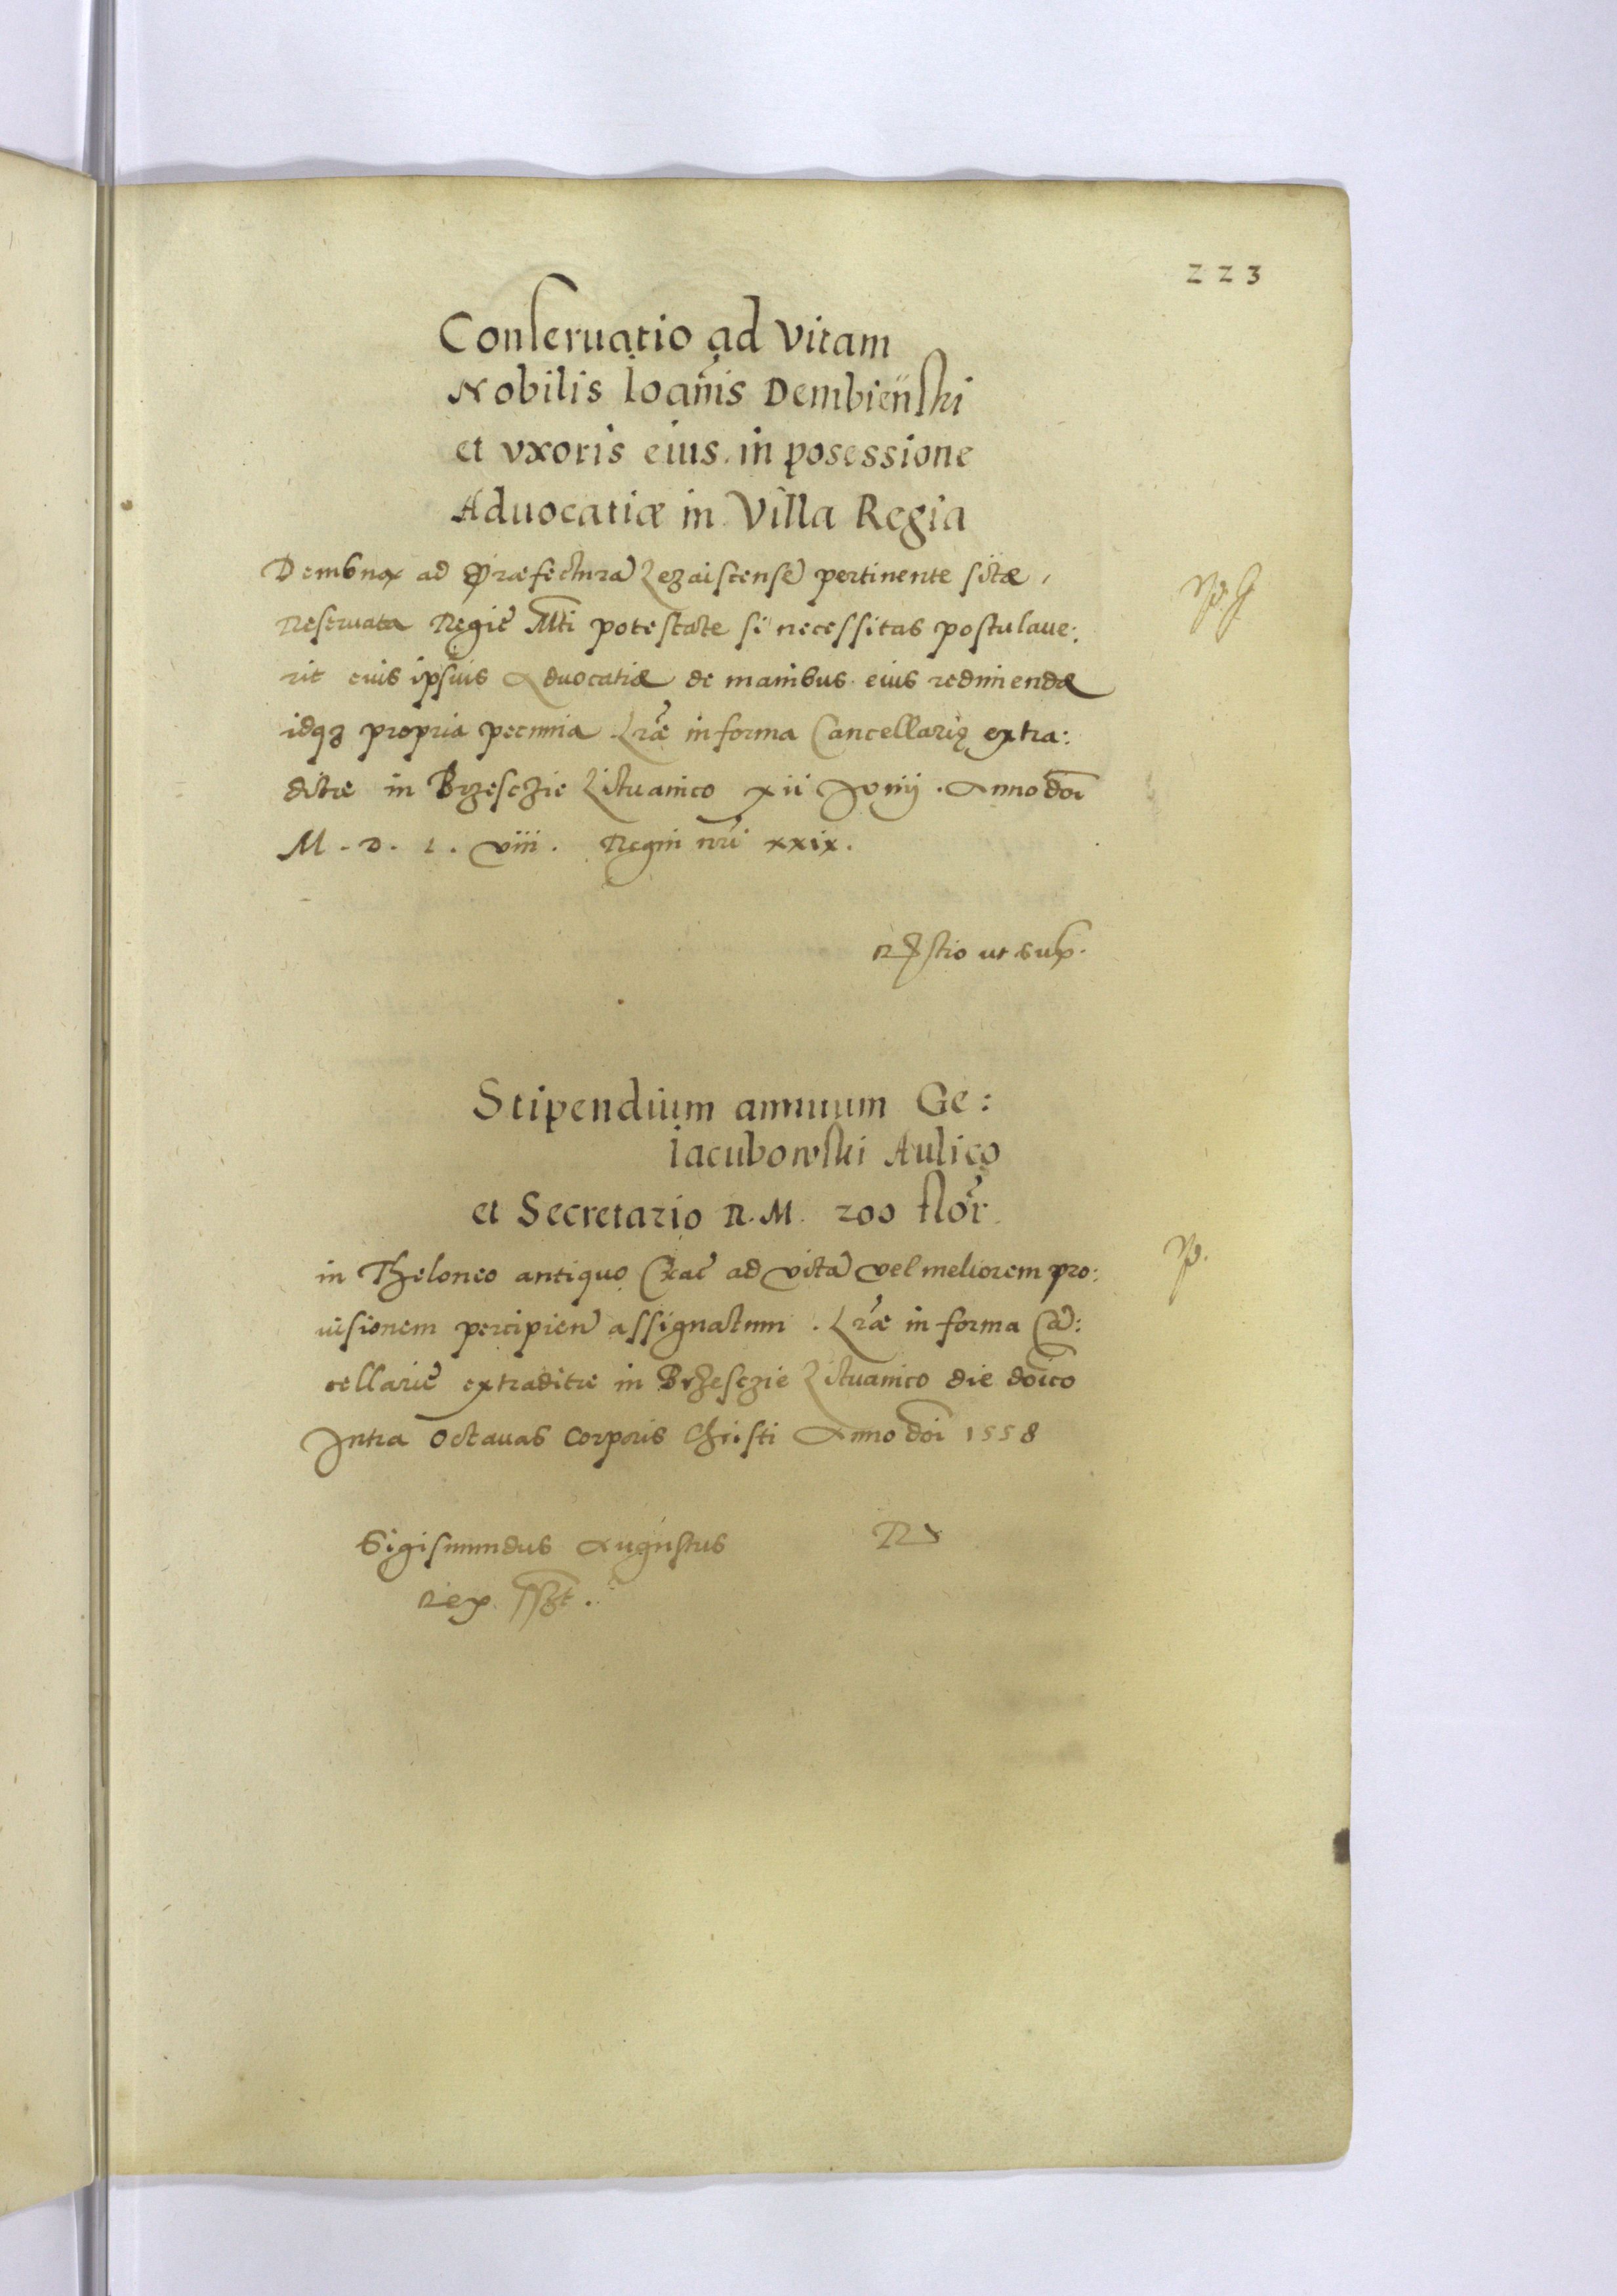 223
Conseruatio ad Vitam
Nobilis Ioañis Dembieński
et vxoris eius in posessione
Aduocatiæ in Villa Regia
Dembna ad Præfecturã Lezaiscensẽ pertinente sitæ,
Reseruata Regiẽ Mti potestate si necessitas postulaue:
rit eius ipsius Aduocatiæ de manibus eius redimendæ
idqȝ propria pecunia Lr̃æ in forma Cancellarię extra:
ditæ in Brzesczie Lituanico xii Junij. Anno doi
M. D. L. viii. Regni nrĩ xxix.
ut sup.
Stipendium annuum Ge:
Iacubowski Aulico
et Secretario R. M. 200 flor̃.
in Theloneo antiquo Crac̃ ad vitã vel meliorem pro:
uisionem percipien̄ assignatum. Lr̃æ in forma Cã:
cellariẽ extraditæ in Brzesczie Lituanico die doĩco
Intra Octauas Corporis Christi Anno doi 1558
Sigismundus Augustus
Rex